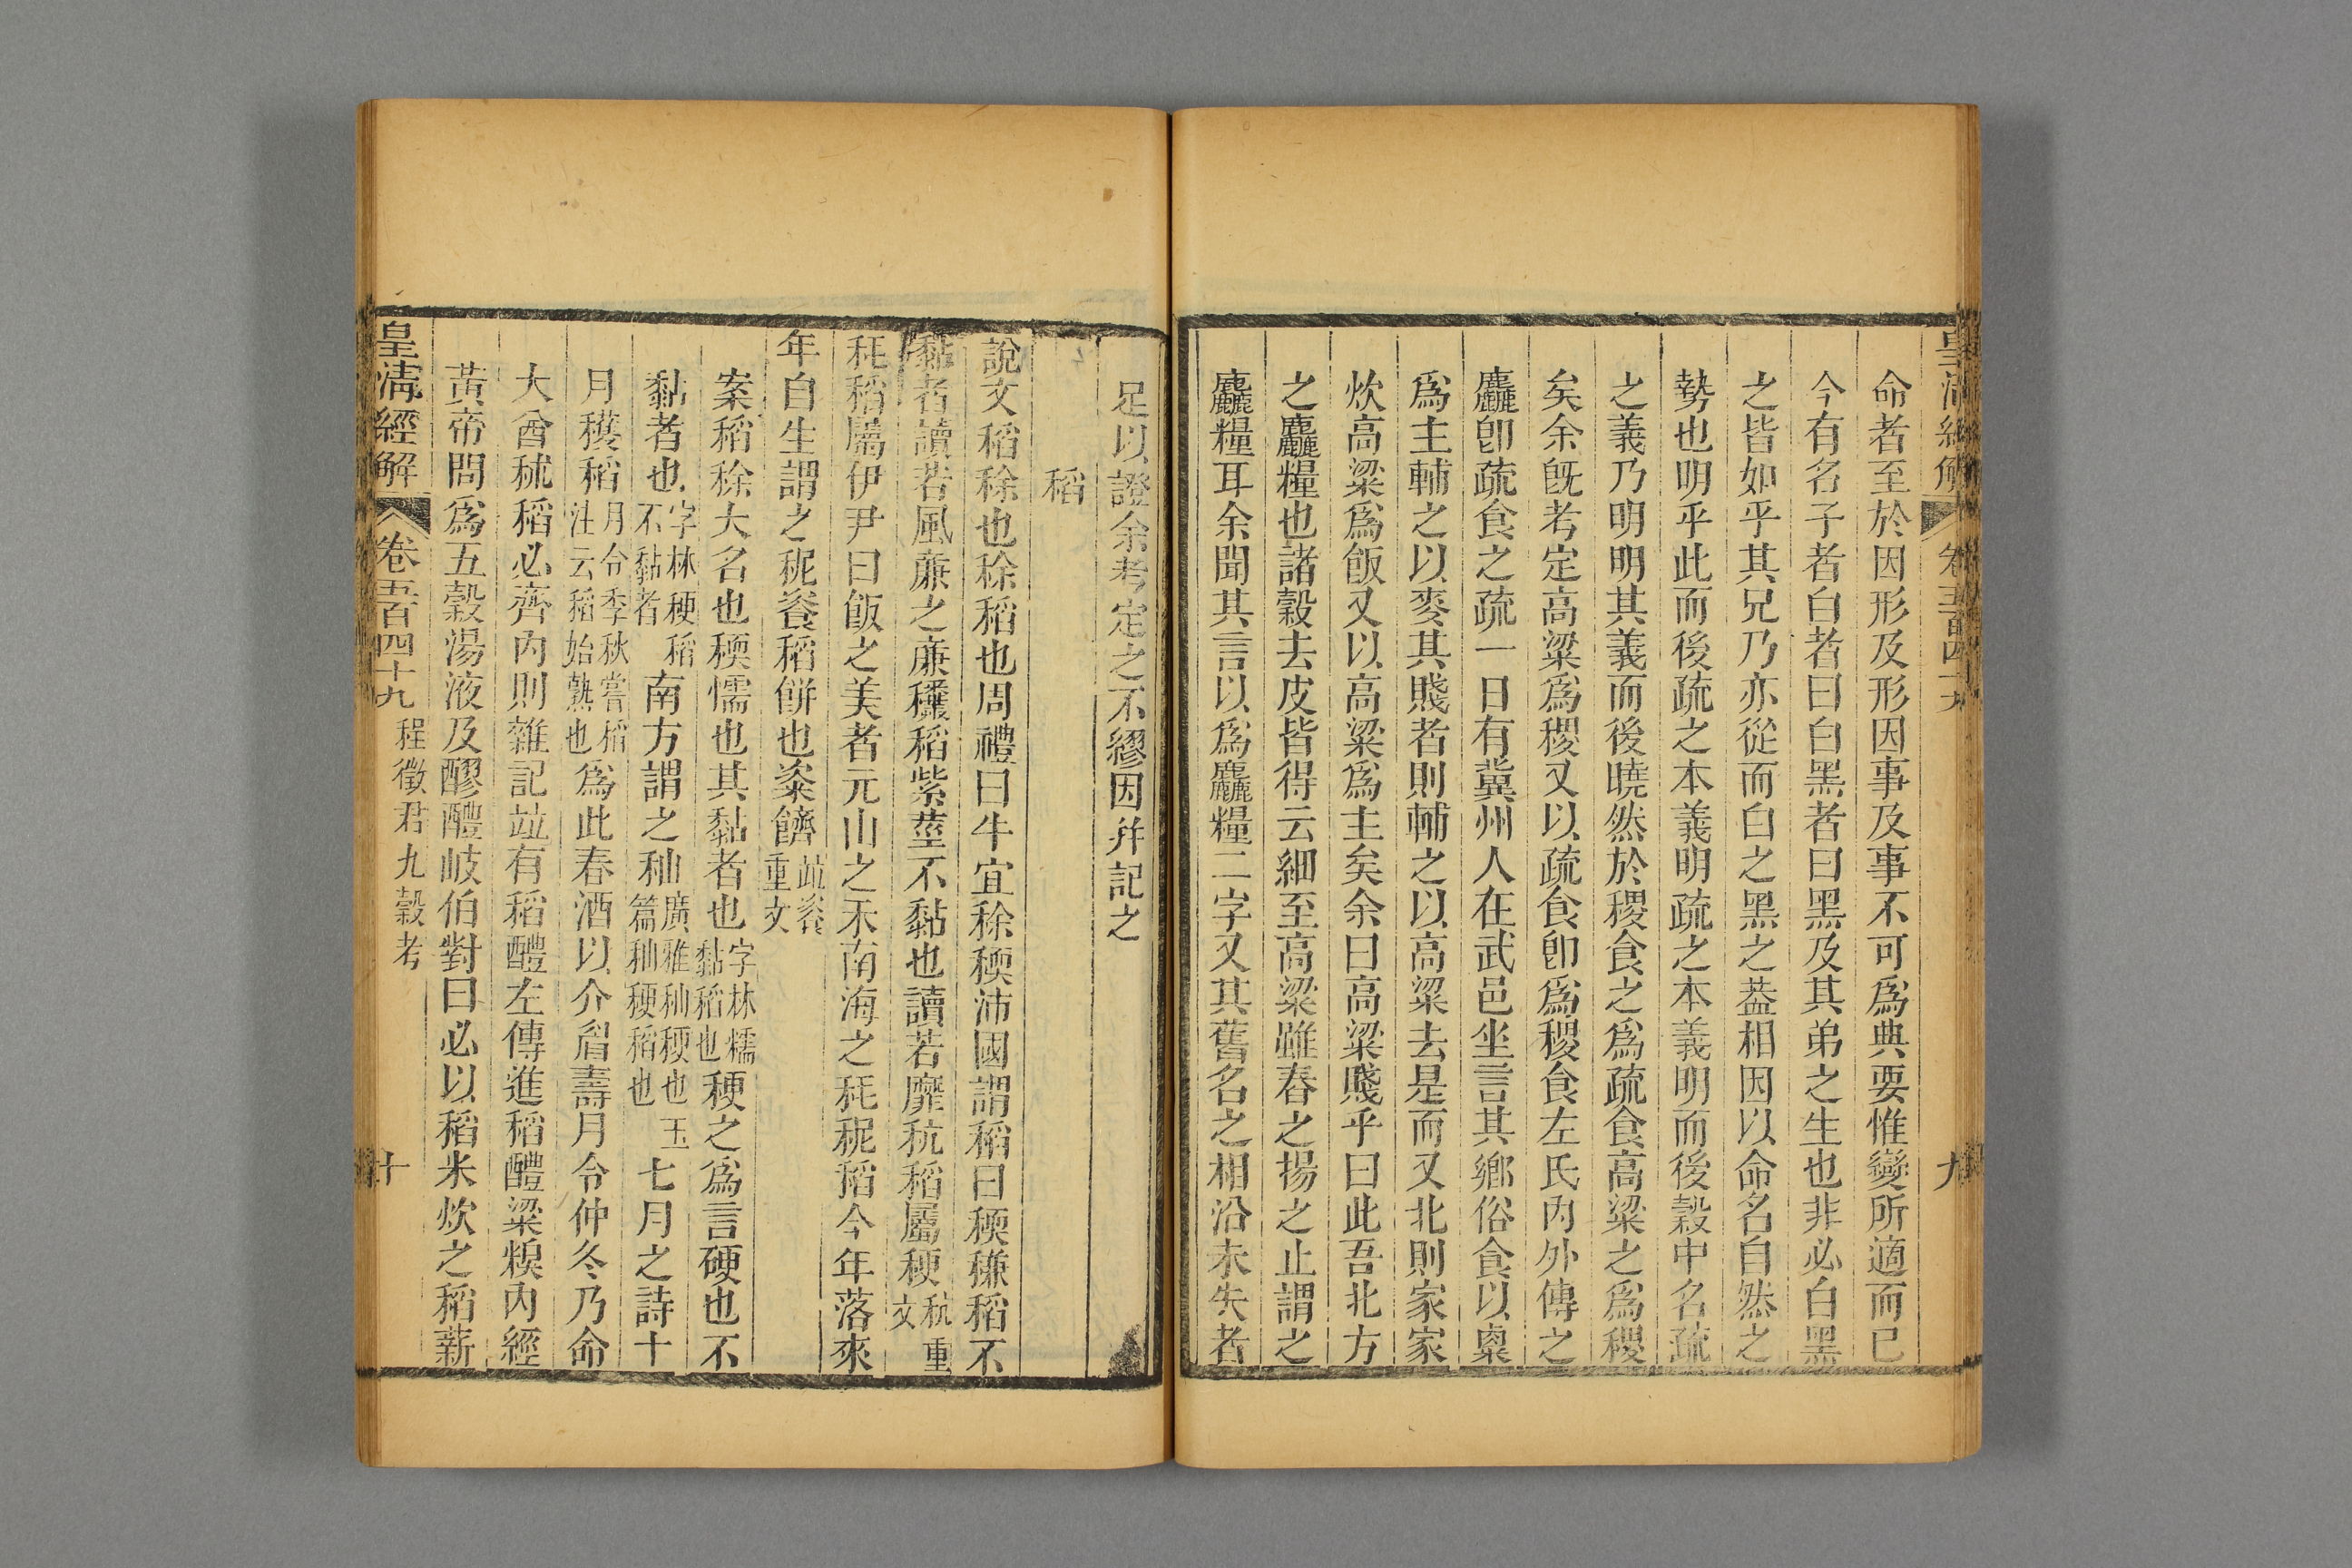 皇清經解 卷五百四十九 九
命者至於因形及形因事及事不可爲典要惟變所適而已
今有名子者白者曰白黑者曰黑及其弟之生也非必白黑
之皆如乎其兄乃亦從而白之黑之葢相因以命名自然之
勢也明乎此而後疏之本義明疏之本義明而後穀中名疏
之義乃明明其義而後曉然於稷食之爲疏食高粱之爲稷
矣余旣考定高粱爲稷又以疏食卽爲稷食左氏内外傳之
麤卽疏食之疏一日有冀州人在武邑坐言其鄉俗食以稟
爲主輔之以麥其賤者則輔之以高粱去是而又北則家家
炊高粱爲飯又以高粱爲主矣余曰高粱賤乎曰此吾北方
之麤糧也諸穀去皮皆得云細至高粱雖舂之揚之止謂之
麤糧耳余聞其言以爲麤糧二字又其舊名之相沿未失者
足以證余考定之不繆因并記之
稻
說文稻稌也稌稻也周禮曰牛宜稌稬沛國謂稻曰稬稴稻不
黏者讀若風廉之廉穳稻紫莖不黏也讀若靡秔稻屬稉秔重文
秏稻屬伊尹曰飯之美者元山之禾南海之秏秜稻今年落來
年自生謂之秜餈稻餅也粢䬢竝餈重文
案稻稌大名也稬懦也其黏者也字林糯黏稻也稉之爲言硬也不
黏者也字林稉稻不黏者南方謂之秈廣雅秈稉也玉篇秈稉稻也七月之詩十
月穫稻月令季秋嘗稻注云稻始熟也爲此春酒以介眉壽月令仲冬乃命
大酋秫稻必齊内則雜記竝有稻醴左傳進稻醴粱糗内經
黃帝問爲五穀湯液及醪醴岐伯對曰必以稻米炊之稻薪
皇清經解 卷五百四十九 程徵君九穀考 十